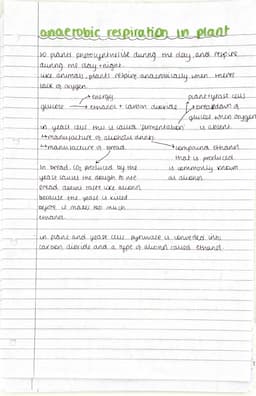 anaerobic respiration in plant
so plants photosynthesise during the day and respire
during the day + night.
like animals, plants respire anaerobically when there's
lack of oxygen.
energy
plant + yeast cells
glucose → ethanol + carbon dioxide
breakdown of
glucose when oxygen
is absent.
in yeast cells this is called fermentation
manufacture of alcoholic drinks
manufacture of bread.
compound ethanol
that is produced
is commonly known
as alcohol.
In bread, CO2 produced by the
yeast causes the dough to rise
bread doesn't taste like alcohol
because the yeast is killed
before it makes too much
ethanol.
in plant and yeast cells, pyruvate is converted into
carbon dioxide and a type of alcohol called ethanol.